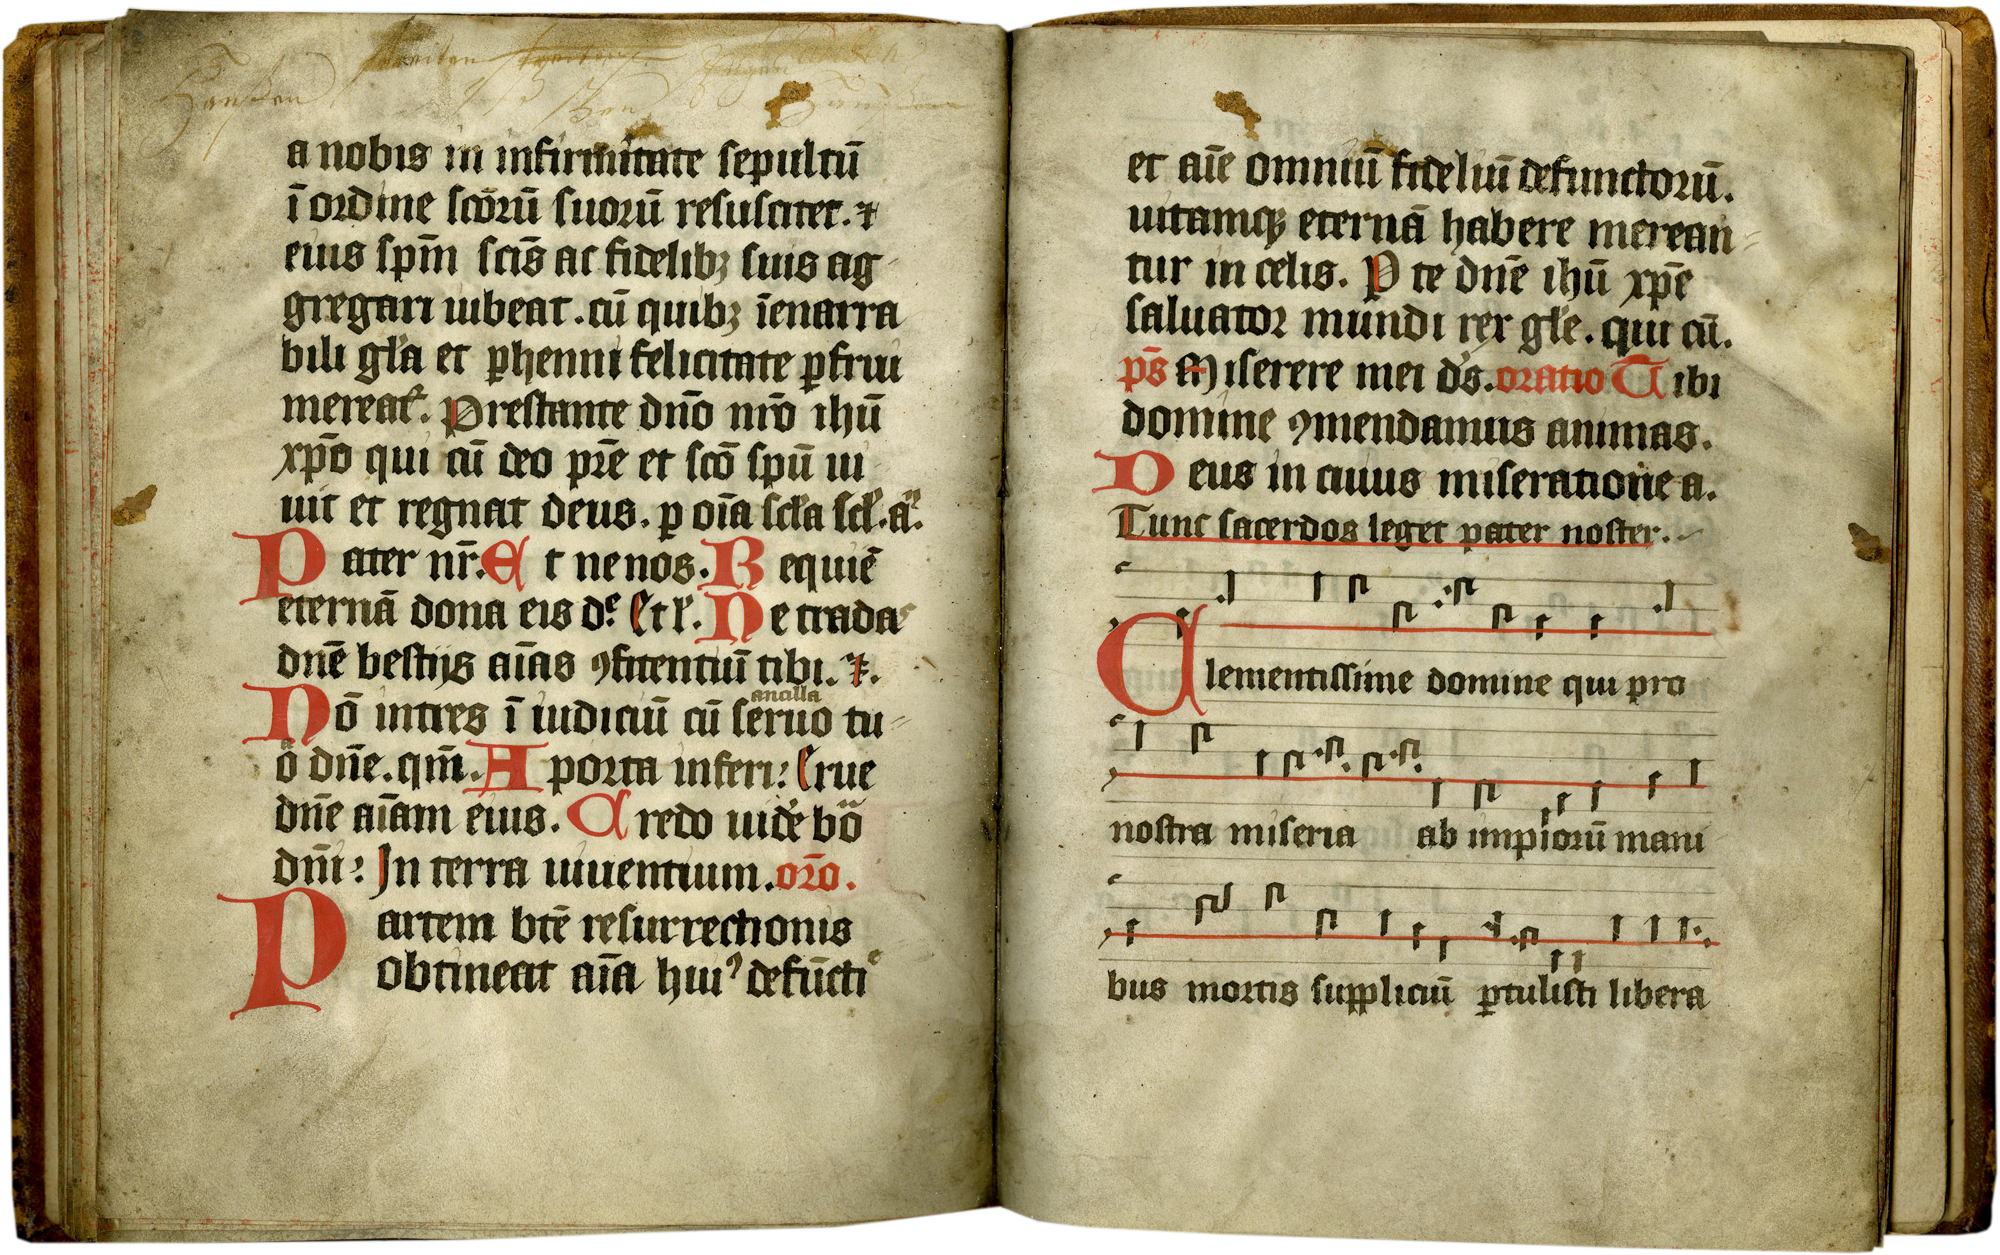 a nobis in infirmitate sepultū
ī ordine scōrū suorū resuscitet. ⁊
eius spm̄ scīs ac fidelibꝫ suis ag
gregari iubeat. cū quibꝫ īenarra
bili gła et ꝑhenni felicitate ꝑfrui
mereat᷑. Prestante dn̄o nr̄o ihū
xp̄o qui cū deo pr̄e et scō spū ui
uit et regnat deus. ꝑ oīa scła scł. a.
Pater nr̄. Et ne nos. Requiē
eternā dona eis d. Et l. Ne tradas
dn̄e bestijs aīas ꝯfitentiū tibi. ⁊.
ancilla
Nō intres ī iudiciū cū seruo tu-
o dn̄e. qm̄. A porta inferi: Erue
dn̄e aīam eius. Credo uide bo
dn̄i: In terra uiuentium. orō.
Partem btē resurrectionis
obtineat aīa huiꝰ defūcti
et aīe omniū fideliū defunctorū.
uitamqꝫ eternā habere merean-
tur in celis. P te dn̄e ihū xp̄e
saluator mundi rex głe. qui cū.
ps̄ Miserere mei ds̄. oratio Tibi
domine ꝯmendamus animas.
Deus in cuius miseratione a.
Tunc sacerdos leget pater noster.
Clementissime domine qui pro
nostra miseria ab impiorū mani
bus mortis suppliciū ꝑtulisti libera